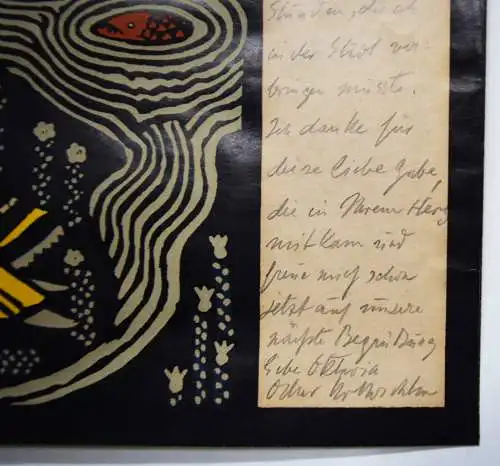 Stunden, die ich
in der Stadt ver-
bringen musste.
Ich danke für
diese liebe Gabe,
die in Ihrem Herz
mitkam und
freue mich schon
jetzt auf unsere
nächste Begrüßung